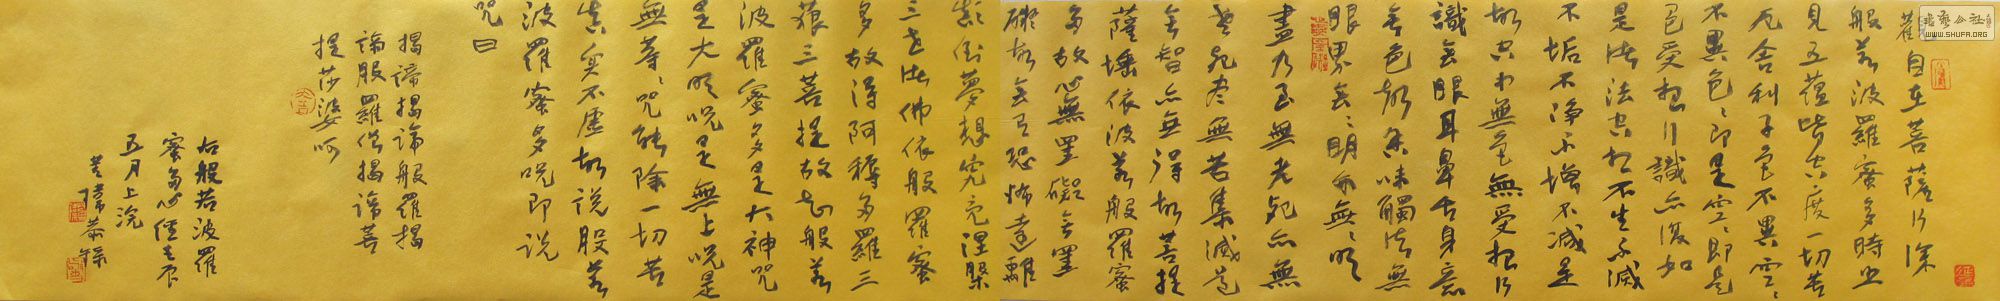 觀自在菩薩行深
般若波羅蜜多時照
見五蘊皆空度一切苦
厄舍利子色不異空〻
不異色〻即是空〻即是
色受想行識亦復如
是諸法空相不生不滅
不垢不淨不增不減是
故空中無色無受想行
識無眼耳鼻舌身意
無色聲香味觸法無
眼界無〻明亦無〻明
盡乃至無老死亦無
老死盡無苦集滅道
無智亦無得故菩提
薩埵依波若般羅蜜
多故心無罣礙無罣
礙故無有恐怖遠離
顛倒夢想究竟涅槃
三世諸佛依般羅蜜
多故得阿耨多羅三
藐三菩提故知般若
波羅蜜多是大神咒
是大明咒是無上咒是
無等〻咒能除一切苦
真實不虛故說般若
波羅蜜多咒即說
咒曰
揭諦揭諦般羅揭
諦般羅僧揭諦菩
提莎婆呵
右般若波羅
蜜多心經壬辰
五月上浣
WWW.SHUFA.ORG